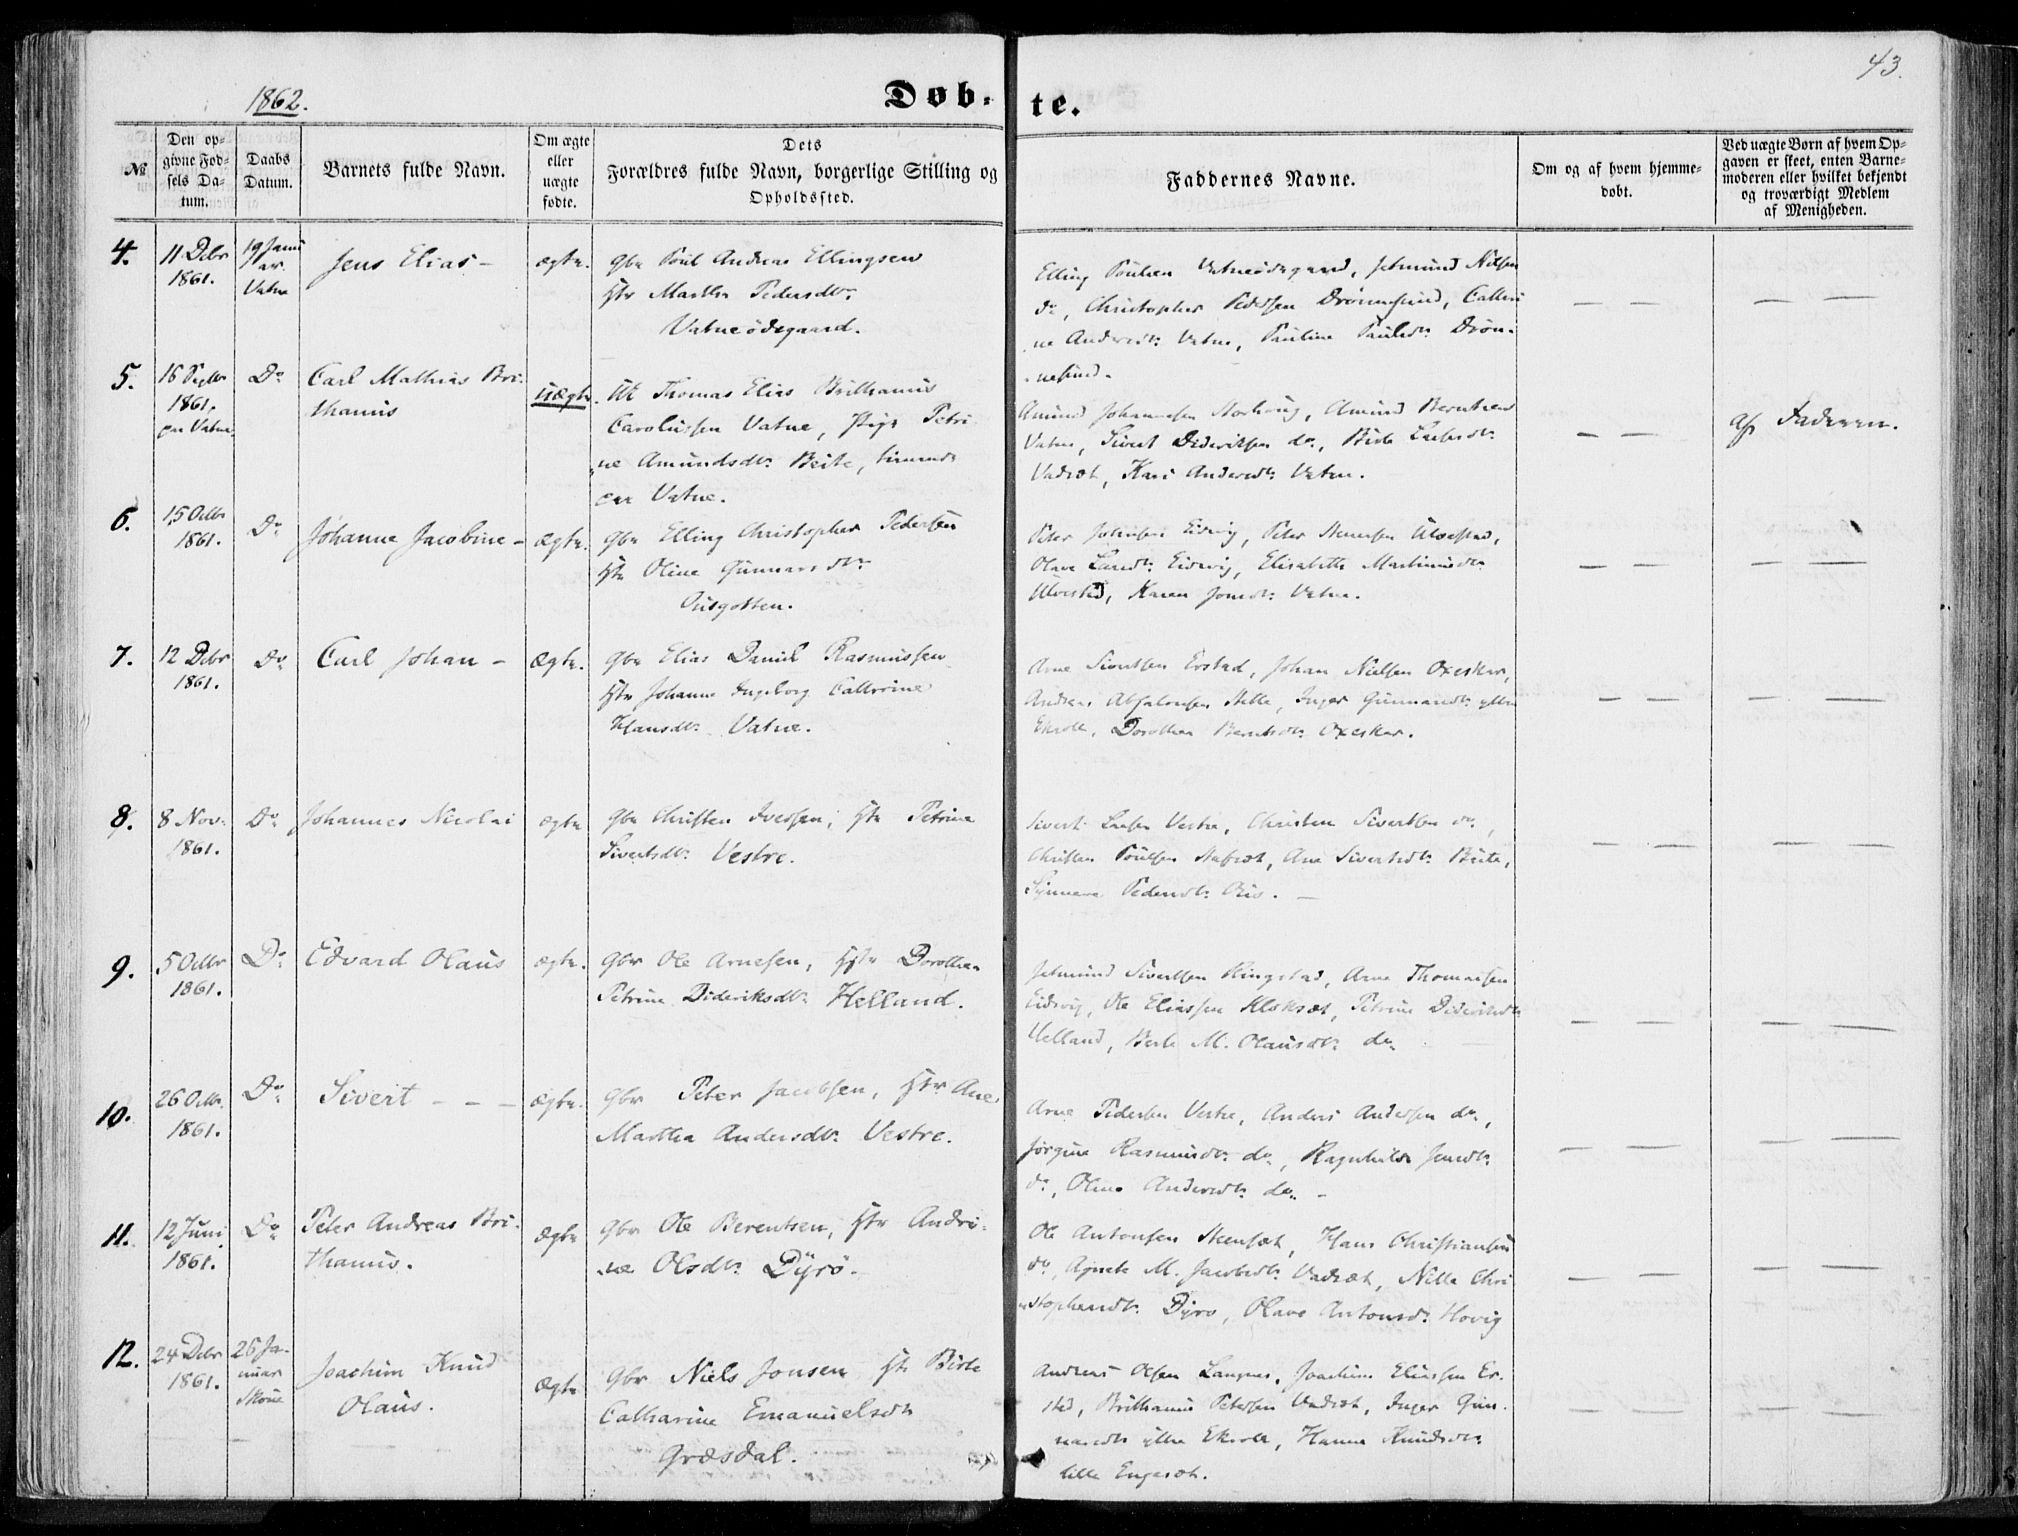 43.
1862.
Døb-
te.
№
Den op-
givne Fød-
sels Da-
tum.
Daabs
Datum.
Barnets fulde Navn.
Om ægte
eller
uægte
fødte.
Dets
Forældres fulde Navn, borgerlige Stilling og
Opholdssted.
Faddernes Navne.
Om og af hvem hjemme-
døbt.
Ved uægte Børn af hvem Op-
gaven er skeet, enten Barne-
moderen eller hvilket bekjendt
og troværdigt Medlem
af Menigheden.
4.
11 Debr
1861.
19 Janu
ar.
Vatne
Jens Elias -
ægte.
Gbr Poul Andreas Ellingsen
Hstr Martha Pedersdtr
Vatneødegaard.
Elling Poulsen Vatneødegaard, Jetmund Nilsen
do, Christopher Pedersen Drønnesund, Cathri
ne Andersdtr Vatne, Pauline Paulsdtr Drøn-
nesund.
5.
16 Septbr
1861.
paa Vatne
Do
Carl Mathias Bri-
thanus
uægte.
Uk Thomas Elias Brithanius
Carolussen Vatne, Pige Petri
ne Amundsdtr Beite, tinende
paa Vatne.
Amund Johannesen, Amund Berntsen
Vatne, Sivert Dideriksen do, Birte Larsdtr
Vadsæt, Kari Andersdtr Vatne.
af Faderen.
6.
15 Octbr
1861.
Do
Johanne Jacobine -
ægte.
Gbr Elling Christopher Pedersen
Hstr Oline Gunnarsdtr
Peter Johnsen Eidsvig, Peter Ulvestad,
Olave Larsdtr Eidsvig, Elisabeth Martinusdtr
Ulvestad, Karen Jonsdtr Vatne.
7.
12 Debr
1861.
Do
Carl Johan -
ægte.
Gbr Elias Daniel Rasmussen
Hstr Johanne Ingeborg Cathrine
Hansdtr Vatne.
Arne Sivertsen Erstad, Johan Nielsen Oxeskar,
Andreas Absalonsen Helle, Inger Gunnarsdtr ytre
Ekrole, Dorothea Berntsdtr Oxeskar.
8.
8 Nov.
1861.
Do
Johannes Nicolai
ægte
Gbr Christen Iversen, Hstr Petrine
Sivertsdtr Vestre.
Sivert Larsen Vestre, Christen Sivertsen do,
Christen Poulsen, Ane Sivertsdtr Beite,
Synneve Pedersdtr.
9.
5 Octbr
1861.
Do
Edvard Olaus
ægte.
Gbr Ole Arnesen, Hstr Dorothea
Petrine Dideriksdtr Helland.
Jetmund Sivertsen Ringstad, Arne Thomassen
Eidsvig, Ole Eliassen Kloksæt, Petrine Dideriksdtr
Helland, Berte M. Olausdtr do
10.
26 Octbr.
1861.
Do
Sivert - - -
ægte.
Gbr Peter Jacobsen, Hstr Ane
Martha Andersdtr Vestre.
Arne Pedersen Vestre, Anders Andersen do,
Jørgine Rasmusdtr do, Ragnhilde Jensdtr
do, Oline Andersdtr do -
11.
12 Juni
1861.
Do
Peter Andreas Bri-
thanus.
ægte
Gbr Ole Berentsen, Hstr Andri-
ne Olsdtr Dyrø.
Ole Antonsen Steensæt, Hans Christiansen
do, Agnete M. Jacobsdtr Vadsæt, Nille Chri
stophersdtr Dyrø, Olave Antonsdtr Hovig
12.
24 Debr
1861.
26 Ja-
nuar
Skoue
Joachim Knud
Olaus.
ægte
Gbr Niels Jonsen Hstr Birte
Catharine Emanuelsdtr
Græsdal.
Andreas Olsen Langnes, Joachim Eliassen Er-
sted, Brithanus Petersen Vadsæt, Inger Gun-
narsdtr ytre Ekrole, Hanna Knudsdtr
lille Engesæt.